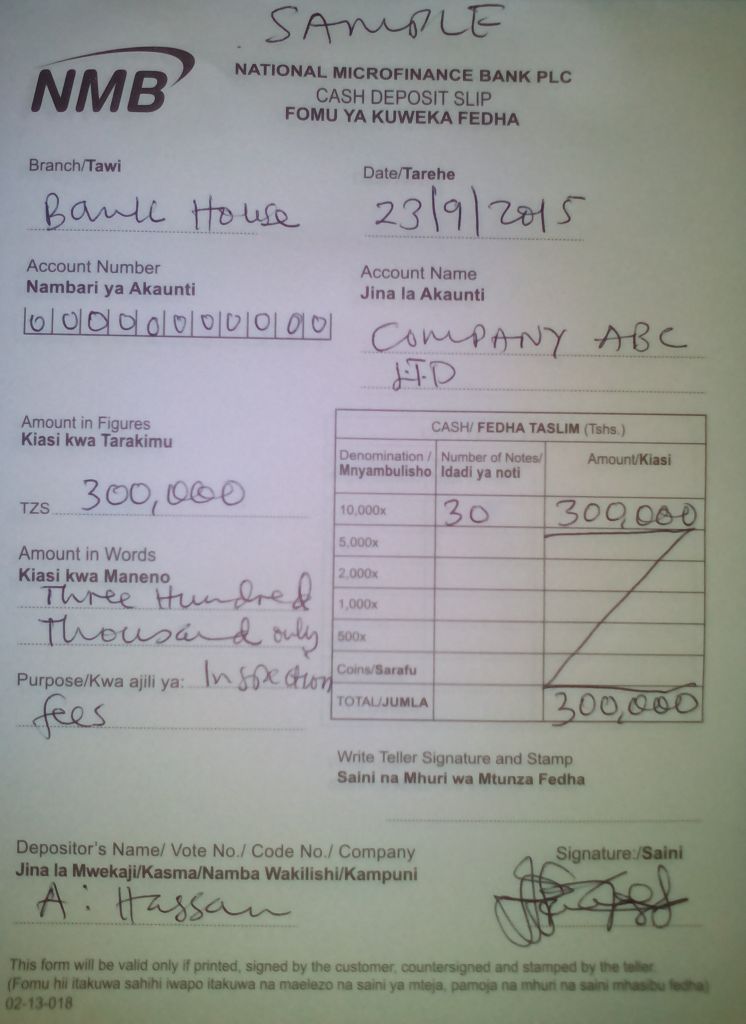 SAMPLE
NMB
NATIONAL MICROFINANCE BANK PLC
CASH DEPOSIT SLIP
FOMU YA KUWEKA FEDHA
Branch/Tawi
Bank House
Date/Tarehe
23/9/2015
Account Number
Nambari ya Akaunti
000000000000
Account Name
Jina la Akaunti
COMPANY ABC
LTD
Amount in Figures
Kiasi kwa Tarakimu
TZS 300,000
Amount in Words
Kiasi kwa Maneno
Three Hundred
Thousand only
Purpose/Kwa ajili ya: Inspection
fees
CASH/ FEDHA TASLIM (Tshs.)
Denomination / Number of Notes/ Amount/Kiasi
Mnyambulisho Idadi ya noti
10,000x 30 300,000
5,000x
2,000x
1,000x
500x
Coins/Sarafu
TOTAL/JUMLA 300,000
Write Teller Signature and Stamp
Saini na Mhuri wa Mtunza Fedha
Depositor's Name/ Vote No./ Code No./ Company
Jina la Mwekaji/Kasma/Namba Wakilishi/Kampuni
A. Hassan
Signature:/Saini
This form will be valid only if printed, signed by the customer, countersigned and stamped by the teller.
(Fomu hii itakuwa sahihi iwapo itakuwa na maelezo na saini ya mteja, pamoja na mhuri na saini mhasibu fedha)
02-13-018